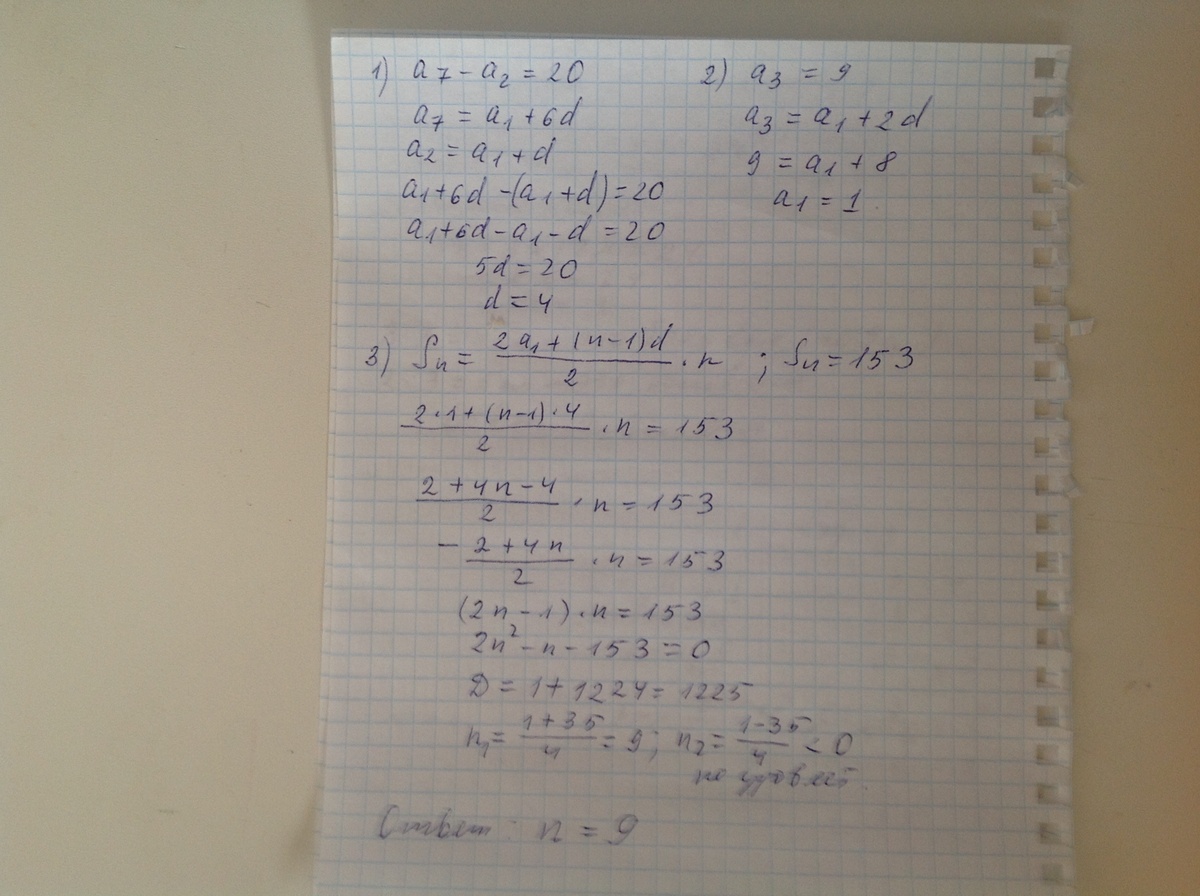 1) a₇ - a₂ = 20
a₇ = a₁ + 6d
a₂ = a₁ + d
a₁ + 6d - (a₁ + d) = 20
a₁ + 6d - a₁ - d = 20
5d = 20
d = 4
2) a₃ = 9
a₃ = a₁ + 2d
9 = a₁ + 8
a₁ = 1
3) Sₙ = (2a₁ + (n-1)d)/2 · n ; Sₙ = 153
(2·1 + (n-1)·4)/2 · n = 153
(2 + 4n - 4)/2 · n = 153
(- 2 + 4n)/2 · n = 153
(2n - 1) · n = 153
2n² - n - 153 = 0
D = 1 + 1224 = 1225
n₁ = (1 + 35)/4 = 9; n₂ = (1 - 35)/4 < 0
не удовлет.
Ответ: n = 9